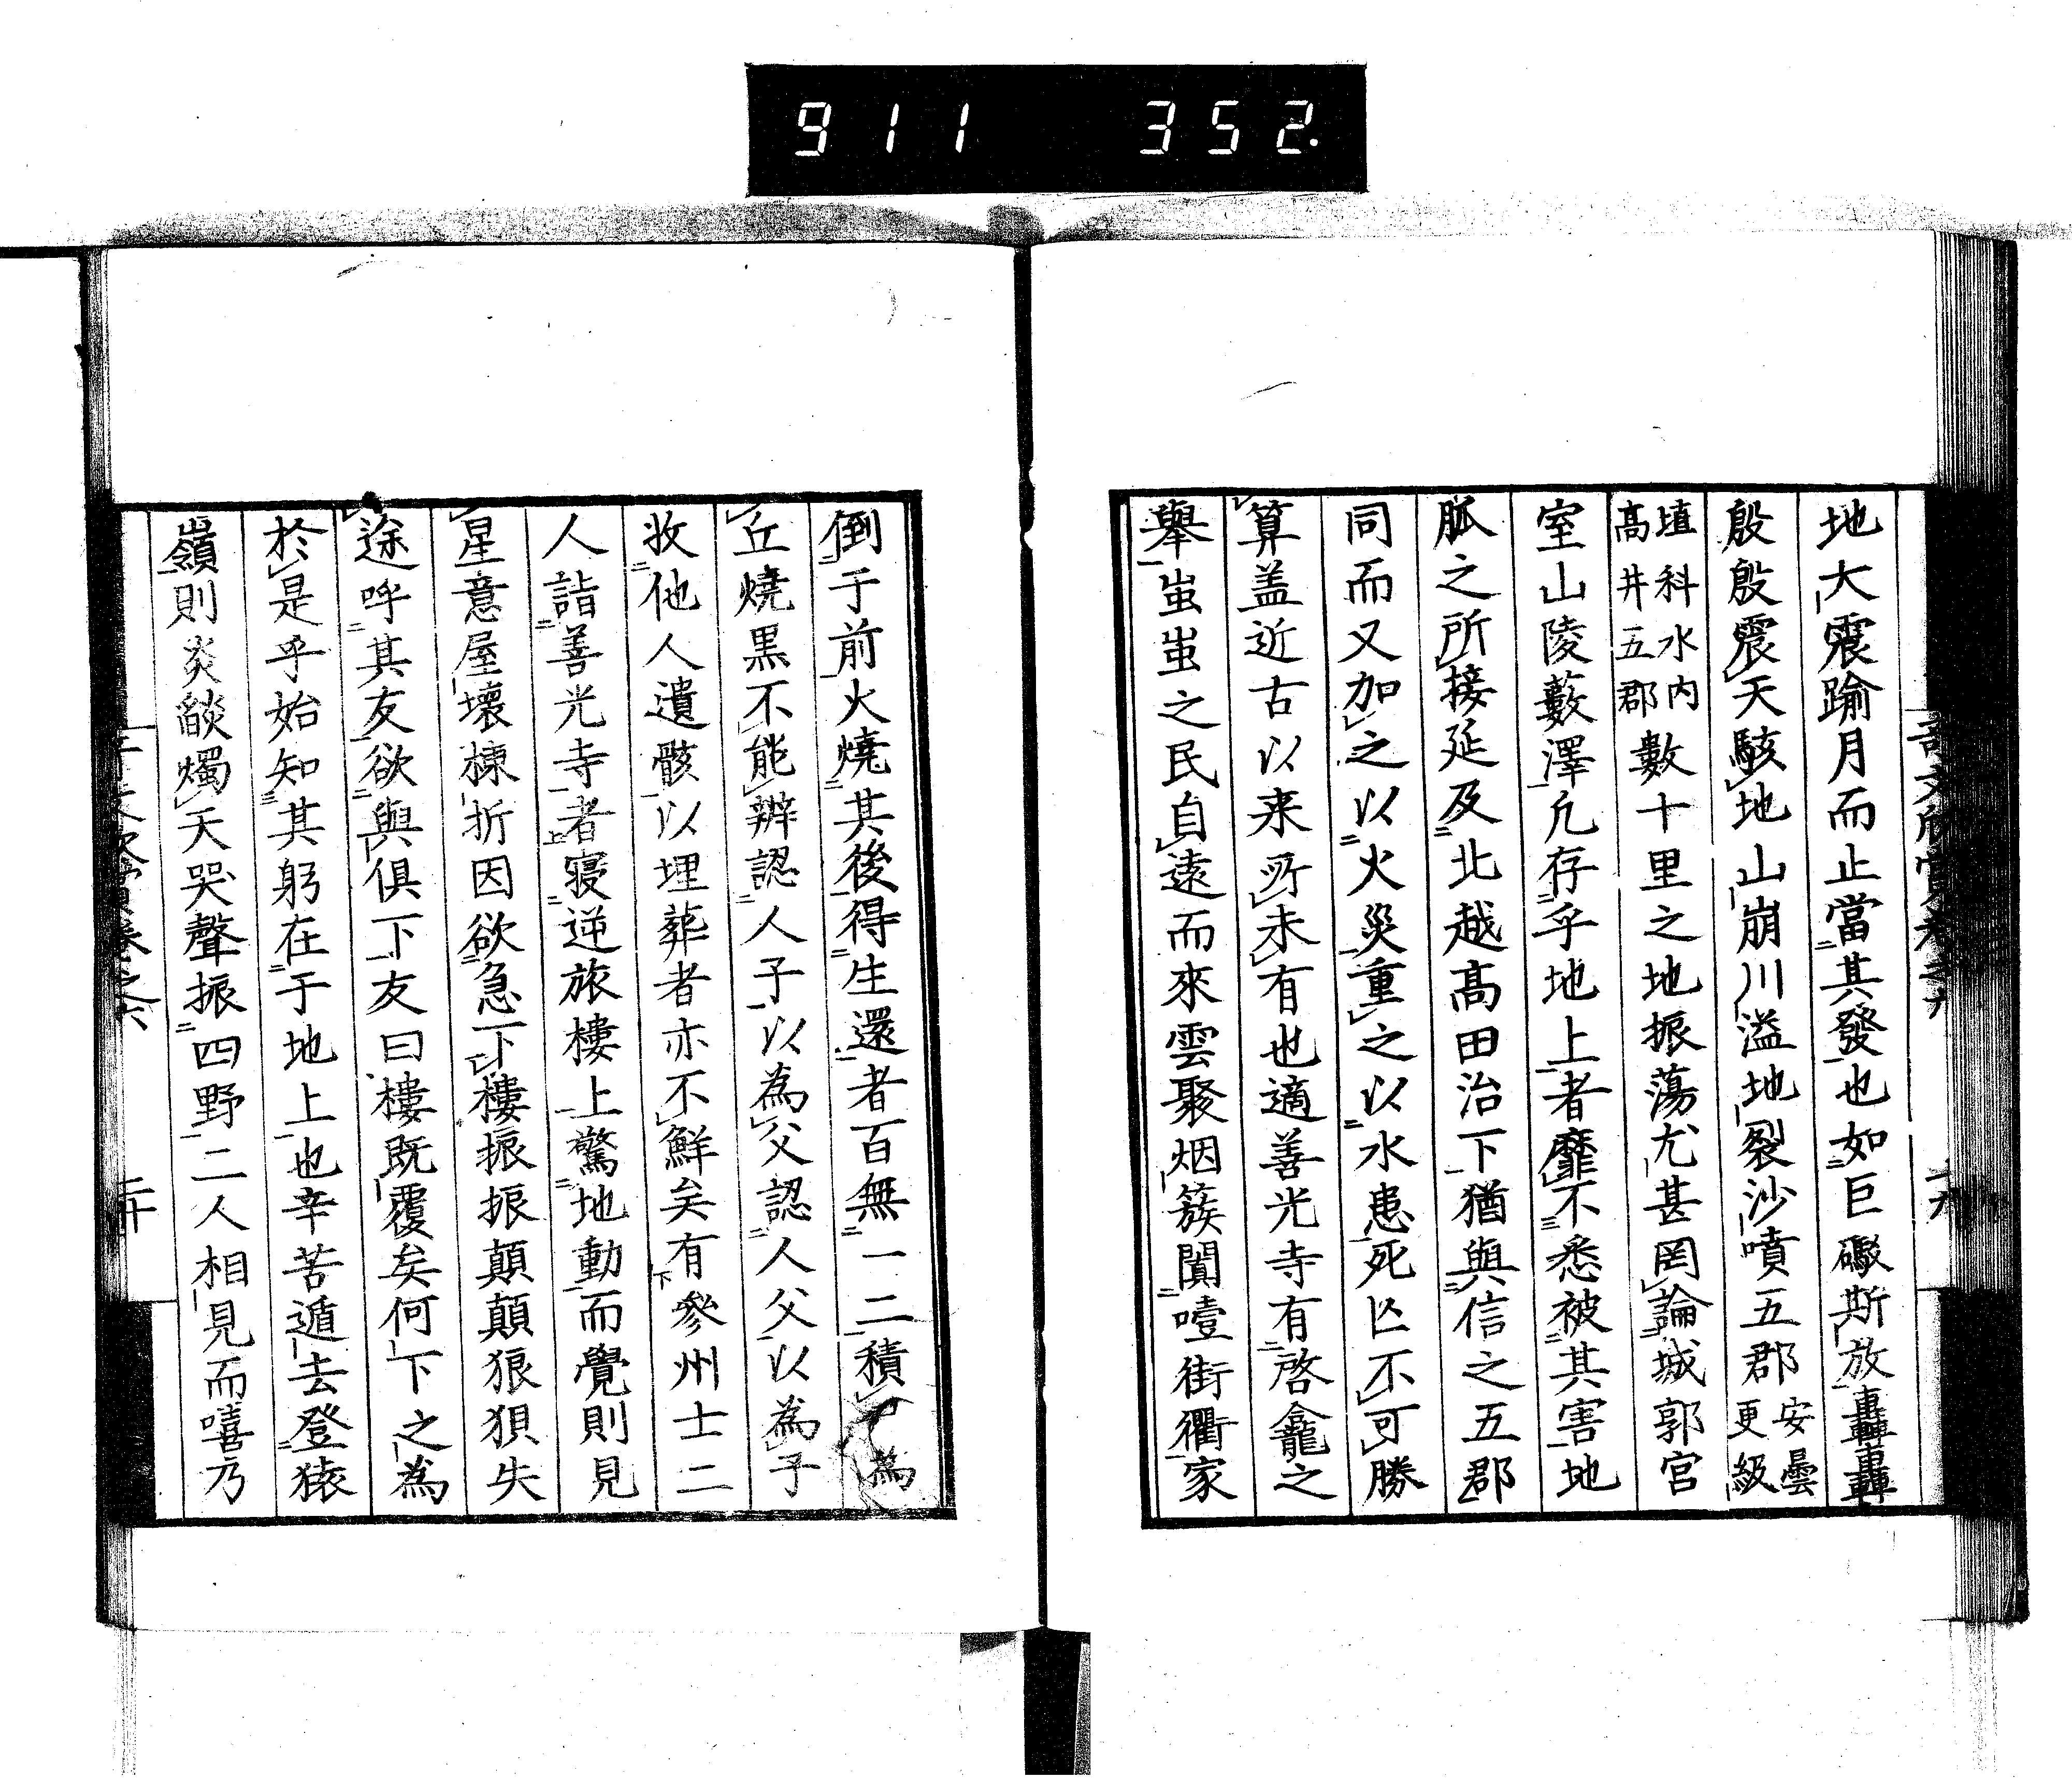 911 352.
地大震踰月而止當其發也如巨礮斯放轟轟
殷殷震天駭地山崩川溢地裂沙噴五郡安曇更級
埴科水内高井五郡數十里之地振蕩尤甚罔論城郭宮
室山陵藪澤凡存乎地上者靡不悉被其害地
脈之所接延及北越高田治下猶與信之五郡
同而又加之以火災重之以水患死亡不可勝
算盖近古以来所未有也適善光寺有啓龕之
舉蚩蚩之民自遠而來雲聚烟簇闐噎街衢家
倒于前火燒其後得生還者百無一二積尸為
丘燒黒不能辨認人子以為父認人父以為子
收他人遺骸以埋葬者亦不鮮矣有參州士二
人詣善光寺者寝逆旅樓上驚地動而覺則見
星意屋壊棟折因欲急下樓振振顛顛狼狽失
途呼其友欲與俱下友曰樓既覆矣何下之為
於是乎始知其躬在于地上也辛苦遁去登猿
嶺則炎燄燭天哭聲振四野二人相見而嘻乃